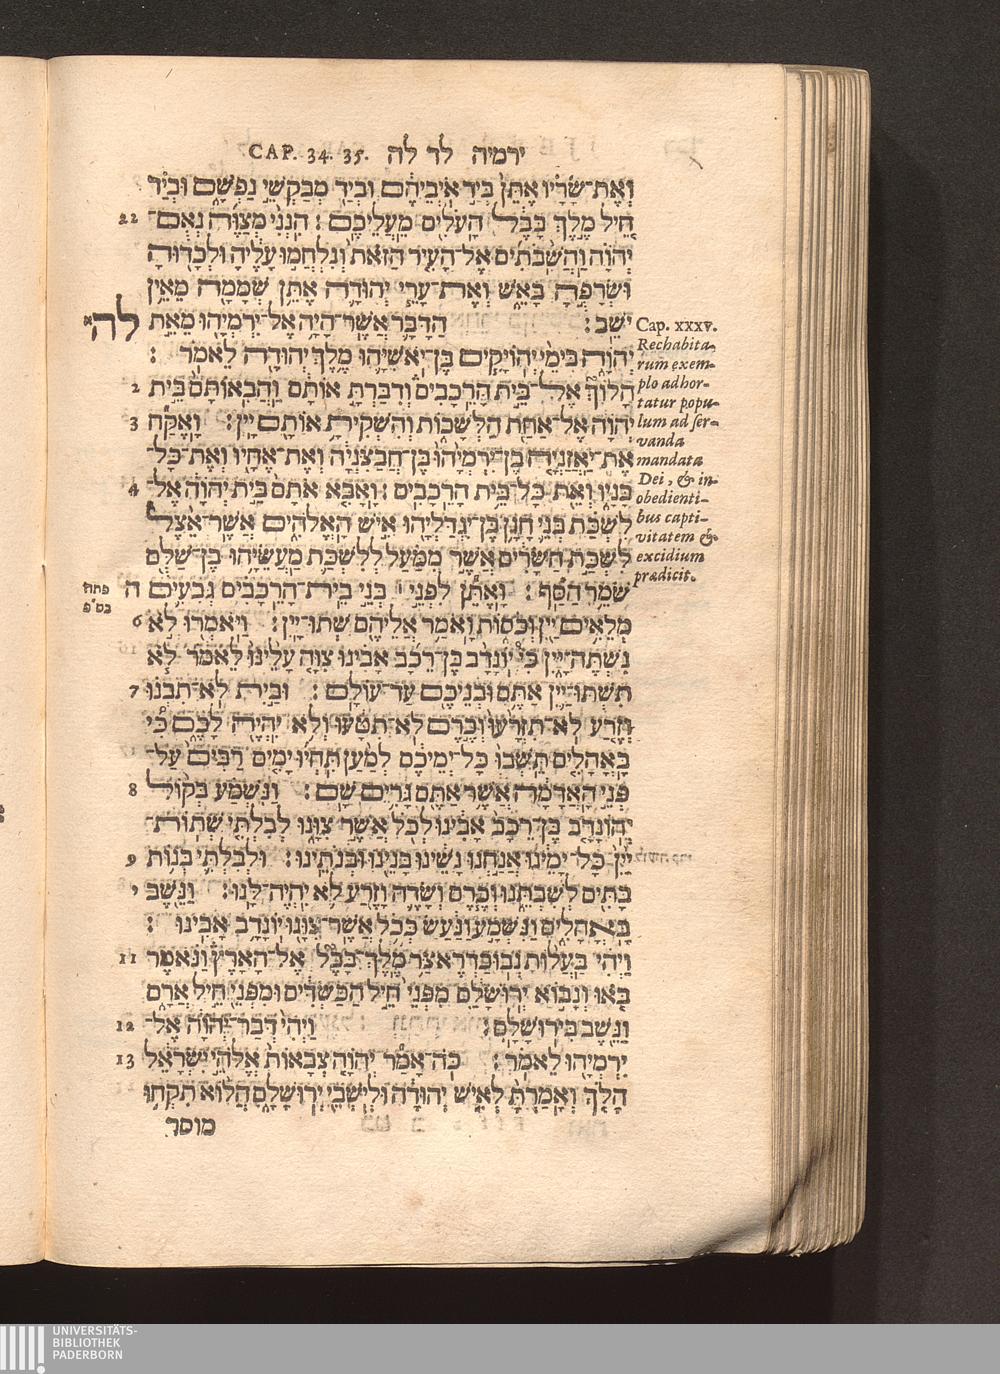 CAP. 34. 35. ירמיה לד לה
וְאֶת־שָׂרָיו אֶתֵּן בְּיַד אֹיְבֵיהֶם וּבְיַד מְבַקְשֵׁי נַפְשָׁם וּבְיַד
22 חֵיל מֶלֶךְ בָּבֶל הָעֹלִים מֵעֲלֵיכֶם׃ הִנְנִי מְצַוֶּה נְאֻם־
יְהוָה וַהֲשִׁבֹתִים אֶל־הָעִיר הַזֹּאת וְנִלְחֲמוּ עָלֶיהָ וּלְכָדוּהָ
וּשְׂרָפֻהָ בָאֵשׁ וְאֶת־עָרֵי יְהוּדָה אֶתֵּן שְׁמָמָה מֵאֵין
יֹשֵׁב׃ הַדָּבָר אֲשֶׁר־הָיָה אֶל־יִרְמְיָהוּ מֵאֵת לה א
יְהוָה בִּימֵי יְהוֹיָקִים בֶּן־יֹאשִׁיָּהוּ מֶלֶךְ יְהוּדָה לֵאמֹר׃
2 הָלוֹךְ אֶל־בֵּית הָרֵכָבִים וְדִבַּרְתָּ אוֹתָם וַהֲבִאוֹתָם בֵּית
3 יְהוָה אֶל־אַחַת הַלְּשָׁכוֹת וְהִשְׁקִיתָ אוֹתָם יָיִן׃ וָאֶקַּח
אֶת־יַאֲזַנְיָה בֶן־יִרְמְיָהוּ בֶּן־חֲבַצִּנְיָה וְאֶת־אֶחָיו וְאֶת־כָּל־
4 בָּנָיו וְאֵת כָּל־בֵּית הָרֵכָבִים׃ וָאָבִא אֹתָם בֵּית יְהוָה אֶל־
לִשְׁכַּת בְּנֵי חָנָן בֶּן־יִגְדַּלְיָהוּ אִישׁ הָאֱלֹהִים אֲשֶׁר־אֵצֶל
לִשְׁכַּת הַשָּׂרִים אֲשֶׁר מִמַּעַל לְלִשְׁכַּת מַעֲשֵׂיָהוּ בֶן־שַׁלֻּם
ה שֹׁמֵר הַסַּף׃ וָאֶתֵּן לִפְנֵי בְּנֵי בֵית־הָרֵכָבִים גְּבִעִים
6 מְלֵאִים יַיִן וְכֹסוֹת וָאֹמַר אֲלֵיהֶם שְׁתוּ־יָיִן׃ וַיֹּאמְרוּ לֹא
נִשְׁתֶּה־יָּיִן כִּי יוֹנָדָב בֶּן־רֵכָב אָבִינוּ צִוָּה עָלֵינוּ לֵאמֹר לֹא
7 תִשְׁתּוּ־יַיִן אַתֶּם וּבְנֵיכֶם עַד־עוֹלָם׃ וּבַיִת לֹא־תִבְנוּ
וְזֶרַע לֹא־תִזְרָעוּ וְכֶרֶם לֹא־תִטָּעוּ וְלֹא יִהְיֶה לָכֶם כִּי
בָּאֳהָלִים תֵּשְׁבוּ כָּל־יְמֵיכֶם לְמַעַן תִּחְיוּ יָמִים רַבִּים עַל־
8 פְּנֵי הָאֲדָמָה אֲשֶׁר אַתֶּם גָּרִים שָׁם׃ וַנִּשְׁמַע בְּקוֹל
יְהוֹנָדָב בֶּן־רֵכָב אָבִינוּ לְכֹל אֲשֶׁר צִוָּנוּ לְבִלְתִּי שְׁתוֹת־
9 יַיִן כָּל־יָמֵינוּ אֲנַחְנוּ נָשֵׁינוּ בָּנֵינוּ וּבְנֹתֵינוּ׃ וּלְבִלְתִּי בְּנוֹת
י בָּתִּים לְשִׁבְתֵּנוּ וְכֶרֶם וְשָׂדֶה וָזֶרַע לֹא יִהְיֶה־לָּנוּ׃ וַנֵּשֶׁב
בָּאֳהָלִים וַנִּשְׁמַע וַנַּעַשׂ כְּכֹל אֲשֶׁר־צִוָּנוּ יוֹנָדָב אָבִינוּ׃
11 וַיְהִי בַּעֲלוֹת נְבוּכַדְרֶאצַּר מֶלֶךְ־בָּבֶל אֶל־הָאָרֶץ וַנֹּאמֶר
בֹּאוּ וְנָבוֹא יְרוּשָׁלַ͏ִם מִפְּנֵי חֵיל הַכַּשְׂדִּים וּמִפְּנֵי חֵיל אֲרָם
12 וַנֵּשֶׁב בִּירוּשָׁלָ͏ִם׃ וַיְהִי דְּבַר־יְהוָה אֶל־
13 יִרְמְיָהוּ לֵאמֹר׃ כֹּה־אָמַר יְהוָה צְבָאוֹת אֱלֹהֵי יִשְׂרָאֵל
הָלֹךְ וְאָמַרְתָּ לְאִישׁ יְהוּדָה וּלְיֹשְׁבֵי יְרוּשָׁלָ͏ִם הֲלוֹא תִקְחוּ
מוסר
Cap. xxxv.
Rechabita-
rum exem-
plo adhor-
tatur popu-
lum ad ser-
vanda
mandata
Dei, & in-
obedienti-
bus capti-
vitatem &
excidium
prædicit.
פתח
בס"פ
UNIVERSITÄTS-
BIBLIOTHEK
PADERBORN